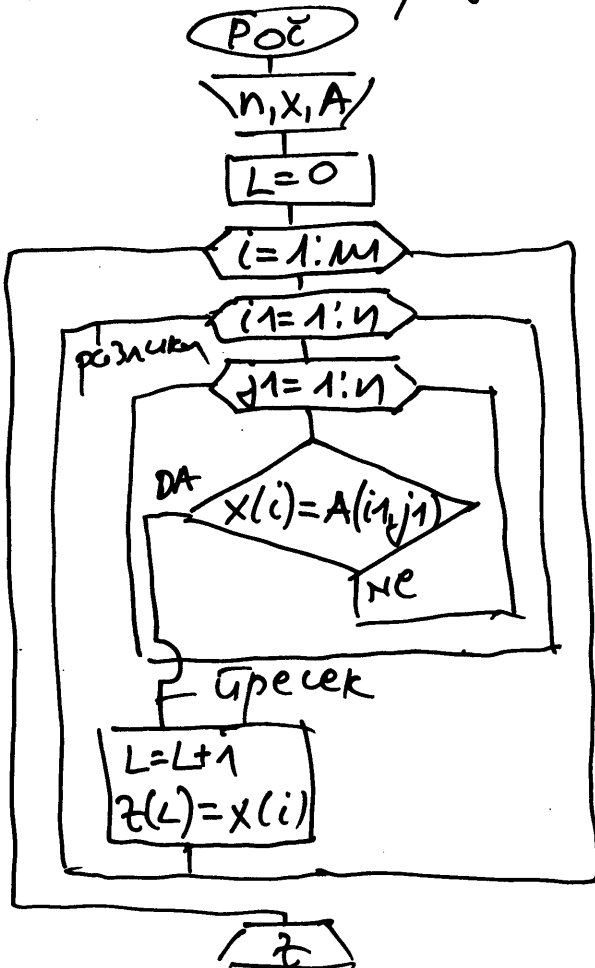 Poč
n, x, A
L=0
i=1:m
i1=1:n
разлики
j1=1:n
DA
x(i)=A(i1,j1)
NE
пресек
L=L+1
z(L)=x(i)
z